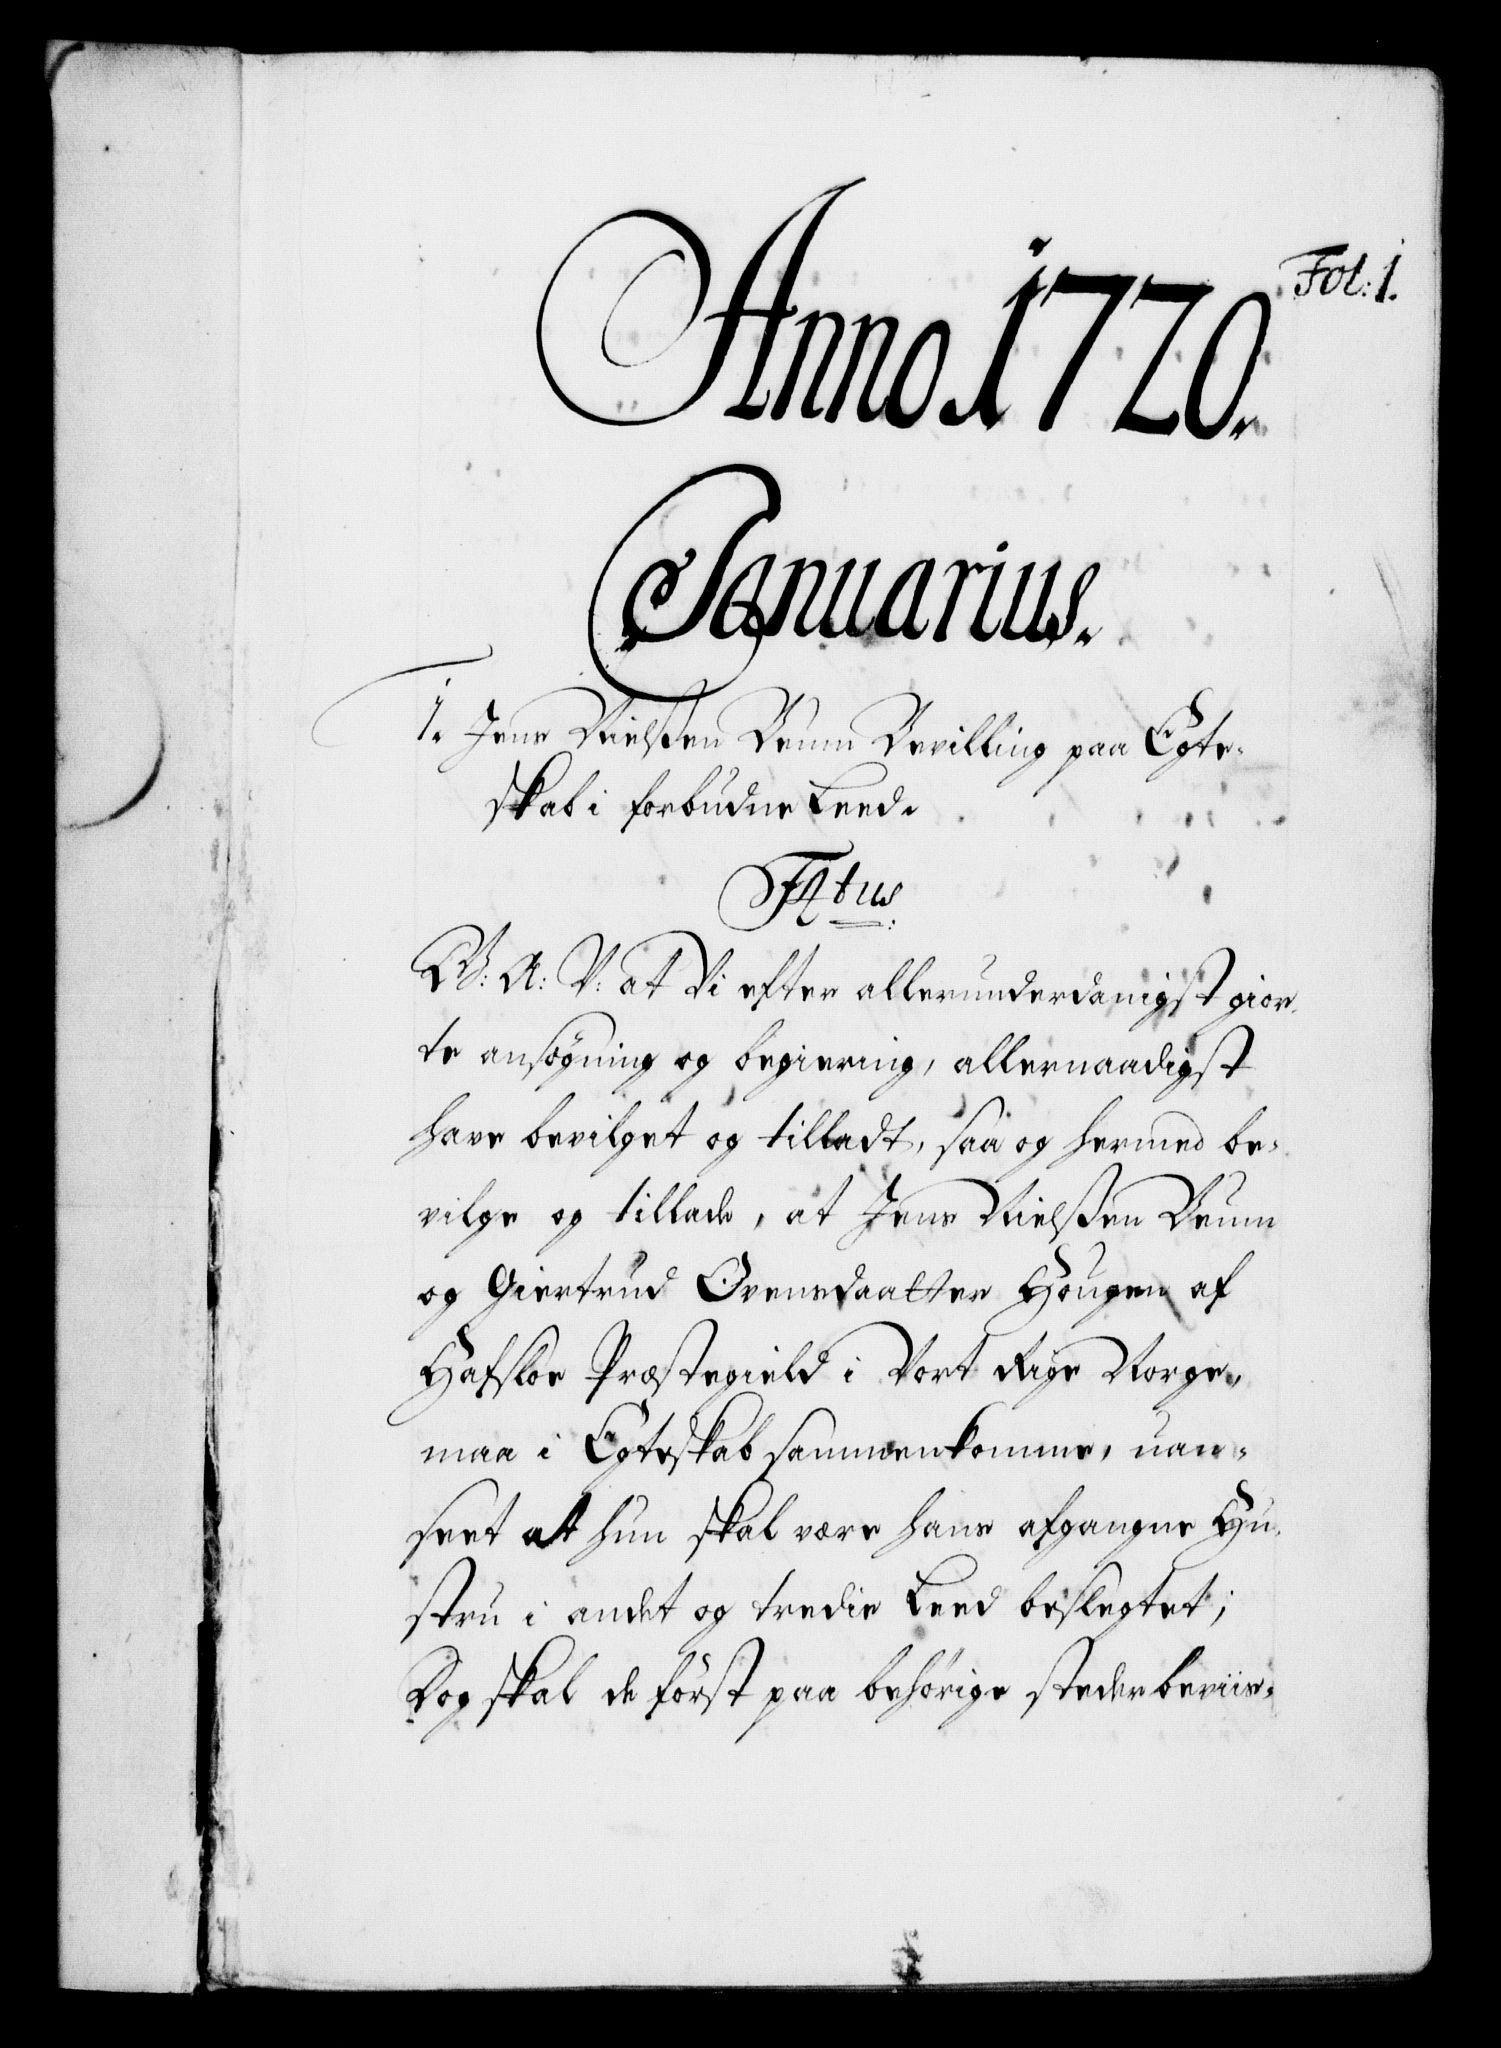 Fol: 1.
Anno 1720.
Januarius.
1. Jens Nielssen Beum Bevilling paa Egte-
skab i forbudne Leed.
F4tus
G: A: V: at Vi efter allerunderdanigst gior-
te ansøgning og begiering, allernaadigst
have bevilget og tilladt, saa og hermed be-
vilge og tillade, at Jens Nielssen Beum
og Giertrud Ovensdaatter Hougen af
Hafsloe Præstegield i Vort Rige Norge,
maa i Egteskab sammenkomme, uan-
seet at hun skal være hans afgangne Hu-
stru i andet og tredie Leed beslegtet;
Dog skal de først paa behörige steder beviis-